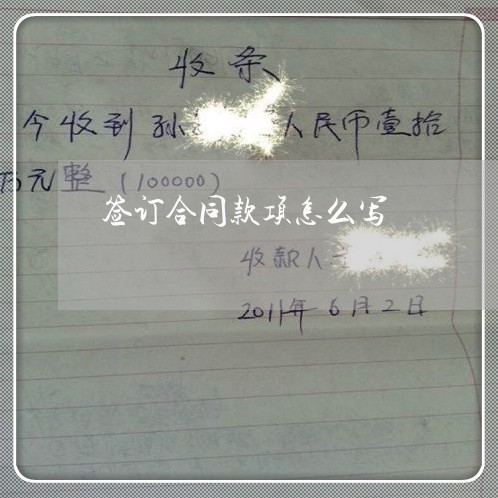 收条
今收到孙 人民币壹拾
万元整(100000)
签订合同款项怎么写
收款人
2011年6月2日